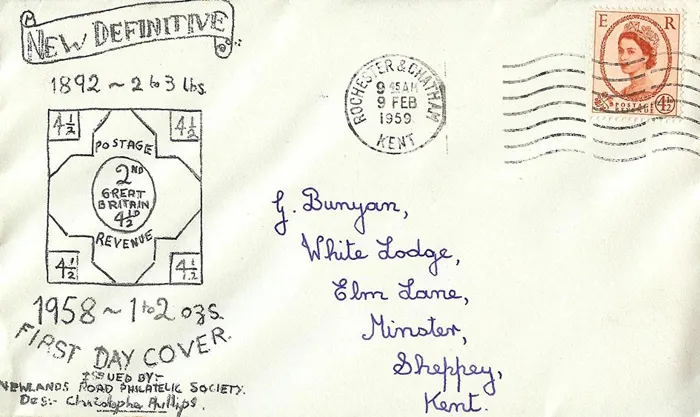 NEW DEFINITIVE
1892 ~ 2 to 3 lbs.
4½ 4½
POSTAGE
2ND
GREAT
BRITAIN
4½D
REVENUE
4½ 4½
1958 ~ 1 to 2 ozs.
FIRST DAY COVER.
ISSUED BY:-
NEWLANDS ROAD PHILATELIC SOCIETY.
Des:- Christopher Phillips.
ROCHESTER & CHATHAM
9 45 AM
9 FEB
1959
KENT
E R
POSTAGE
REVENUE
4½D
G. Bunyan,
White Lodge,
Elm Lane,
Minster,
Sheppey,
Kent.